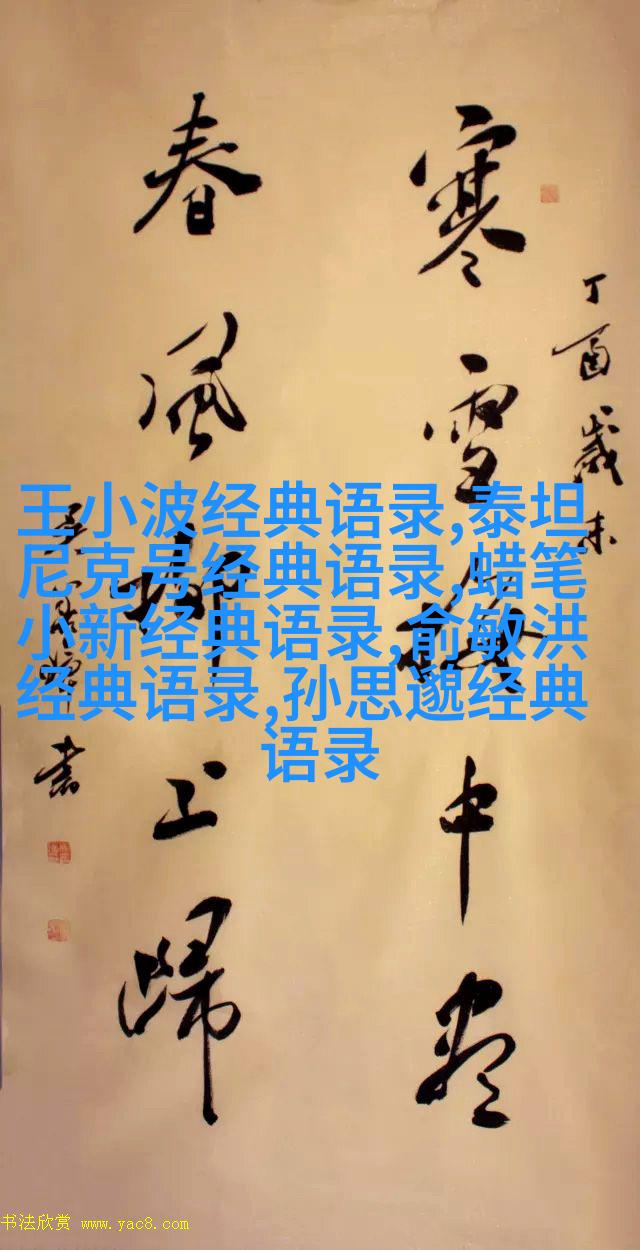 丁酉歲末
寒雪梅中尽
春風柳上歸
書
王小波经典语录,泰坦
尼克号经典语录,蜡笔
小新经典语录,俞敏洪
经典语录,孙思邈经典
语录
书法欣赏 www.yac8.com